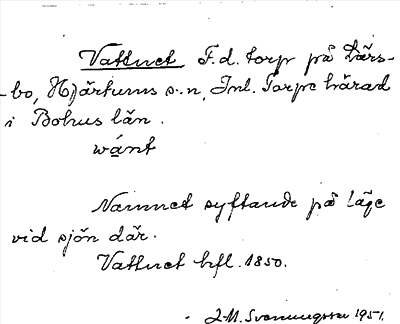 Vattnet F.d. torp på Lärs-
bo, Hjärtums s.n, Inl. Torpe härad
i Bohus län.
wánt
Namnet syftande på läge
vid sjön där.
Vattnet hfl. 1850.
J.M. Svenungsson 1951.